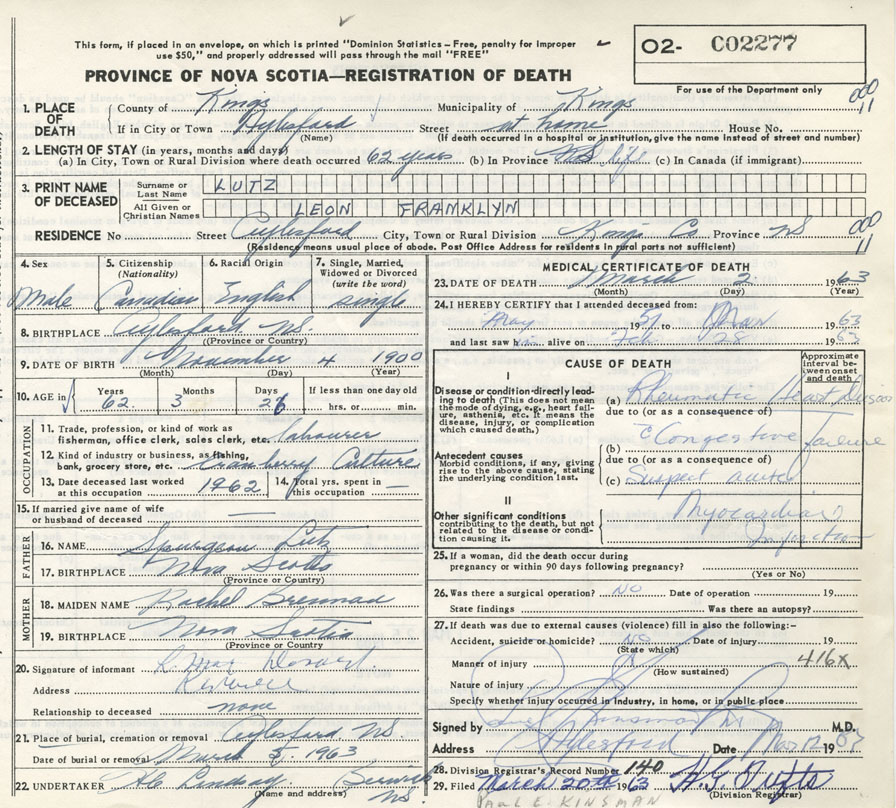 This form, if placed in an envelope, on which is printed "Dominion Statistics – Free, penalty for improper
use $50," and properly addressed will pass through the mail "FREE"
O2- C02277
PROVINCE OF NOVA SCOTIA—REGISTRATION OF DEATH
For use of the Department only
1. PLACE OF DEATH County of Kings Municipality of Kings 000
11
If in City or Town Aylesford Street at home House No.
(Name) (If death occurred in a hospital or institution, give the name instead of street and number)
2. LENGTH OF STAY (in years, months and days)
(a) In City, Town or Rural Division where death occurred 62 years (b) In Province life (c) In Canada (if immigrant)
3. PRINT NAME OF DECEASED Surname or Last Name LUTZ
All Given or Christian Names LEON FRANKLYN
RESIDENCE No Street Aylesford City, Town or Rural Division Kings Co Province NS 000
11
(Residence means usual place of abode. Post Office Address for residents in rural parts not sufficient)
4. Sex Male
5. Citizenship (Nationality) Canadian
6. Racial Origin English
7. Single, Married, Widowed or Divorced (write the word) single
8. BIRTHPLACE Aylesford NS.
(Province or Country)
9. DATE OF BIRTH November 4 1900
(Month) (Day) (Year)
10. AGE in Years 62 Months 3 Days 26 If less than one day old
hrs. or min.
OCCUPATION
11. Trade, profession, or kind of work as
fisherman, office clerk, sales clerk, etc. labourer
12. Kind of industry or business, as fishing,
bank, grocery store, etc. Cranberry Culture
13. Date deceased last worked
at this occupation 1962
14. Total yrs. spent in
this occupation —
15. If married give name of wife
or husband of deceased —
FATHER
16. NAME Spurgeon Lutz
17. BIRTHPLACE Nova Scotia
(Province or Country)
MOTHER
18. MAIDEN NAME Rachel Brennan
19. BIRTHPLACE Nova Scotia
(Province or Country)
20. Signature of informant
Address
Relationship to deceased none
21. Place of burial, cremation or removal Aylesford NS.
Date of burial or removal March 5, 1963
22. UNDERTAKER Lindsay Berwick
NS.
(Name and address)
MEDICAL CERTIFICATE OF DEATH
23. DATE OF DEATH March 2 1963
(Month) (Day) (Year)
24. I HEREBY CERTIFY that I attended deceased from:
May 1957 to Mar 1963
and last saw him alive on Feb 28 1963
CAUSE OF DEATH
Approximate interval between onset and death
I
Disease or condition directly leading to death (This does not mean the mode of dying, e.g., heart failure, asthenia, etc. It means the disease, injury, or complication which caused death.)
(a) Rheumatic Heart Disease
due to (or as a consequence of)
Antecedent causes
Morbid conditions, if any, giving rise to the above cause, stating the underlying condition last.
(b) c Congestive failure
due to (or as a consequence of)
(c) Suspect acute
II
Other significant conditions
contributing to the death, but not related to the disease or condition causing it.
Myocardial
Infarction
25. If a woman, did the death occur during
pregnancy or within 90 days following pregnancy?
(Yes or No)
26. Was there a surgical operation? NO Date of operation 19
State findings Was there an autopsy?
27. If death was due to external causes (violence) fill in also the following:-
Accident, suicide or homicide? NO Date of injury 19
(State which)
Manner of injury 416X
(How sustained)
Nature of injury
Specify whether injury occurred in industry, in home, or in public place
Signed by Kinsman M.D.
Address Aylesford Date Mar 12 1963
28. Division Registrar's Record Number 140
29. Filed March 20th 1963
(Division Registrar)
PAUL E. KINSMAN